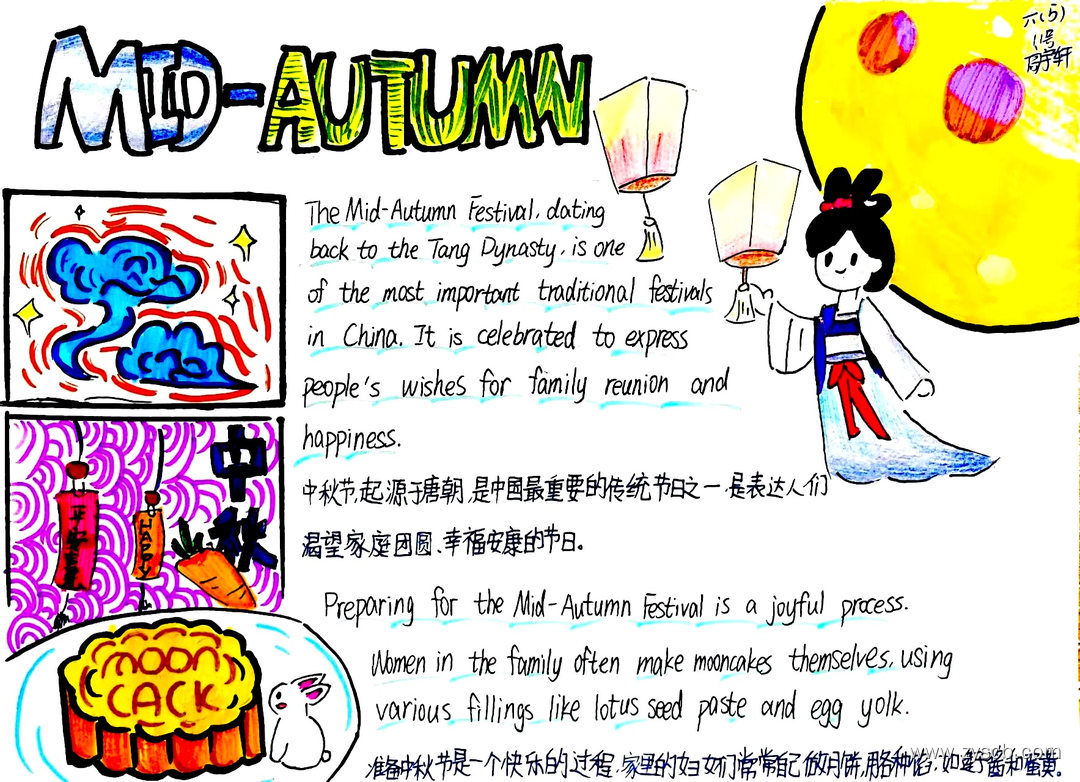 MID-AUTUMN
六(5)
11号
The Mid-Autumn Festival, dating
back to the Tang Dynasty, is one
of the most important traditional festivals
in China. It is celebrated to express
people's wishes for family reunion and
happiness.
中秋节,起源于唐朝,是中国最重要的传统节日之一,是表达人们
渴望家庭团圆、幸福安康的节日。
中秋
平安喜
HAPPY
Preparing for the Mid-Autumn Festival is a joyful process.
Women in the family often make mooncakes themselves, using
various fillings like lotus seed paste and egg yolk.
准备中秋节是一个快乐的过程,家里的妇女们常常自己做月饼,用各种馅,如莲蓉和蛋黄.
MOON
CACK